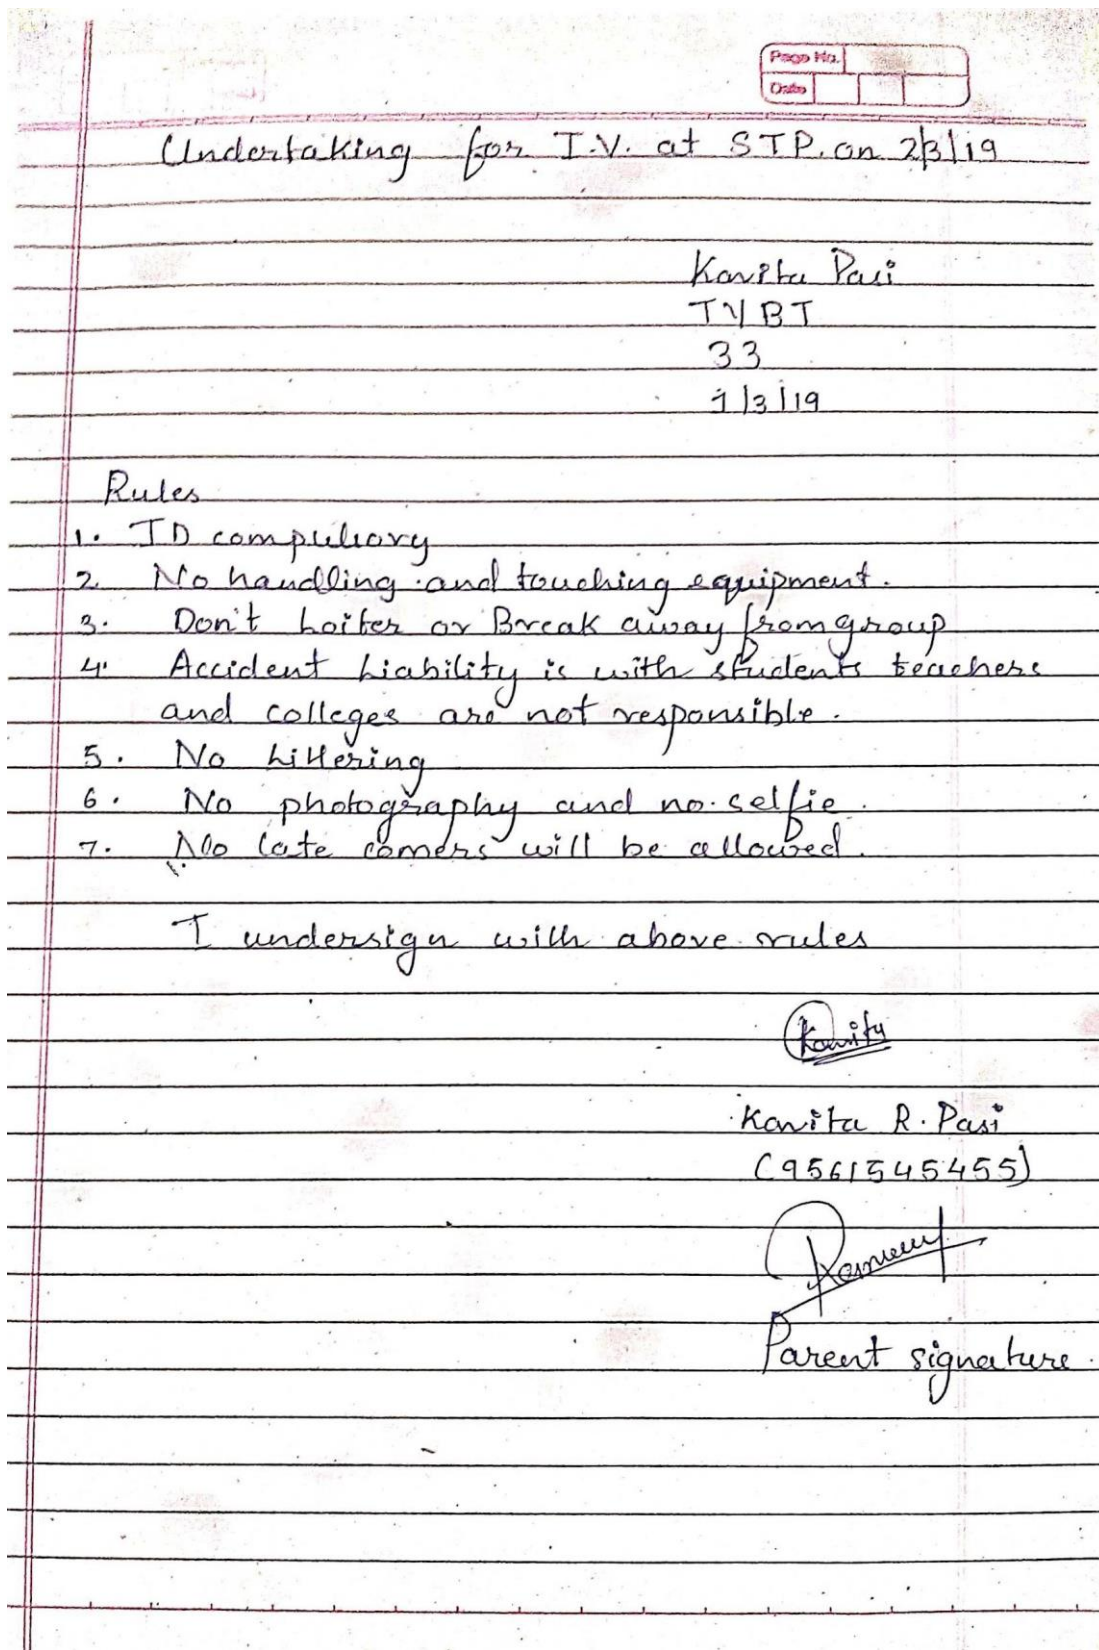 Page No.
Date
Undertaking for I.V. at STP. on 2/3/19
Kavita Pasi
TYBT
33
1/3/19
Rules
1. ID compulsory
2. No handling and touching equipment.
3. Don't Loiter or Break away from group
4. Accident Liability is with students teachers
and colleges are not responsible.
5. No Littering
6. No photography and no selfie.
7. No late comers will be allowed.
I undersign with above rules
Kavita
Kavita R. Pasi
(9561545455)
Parent signature.